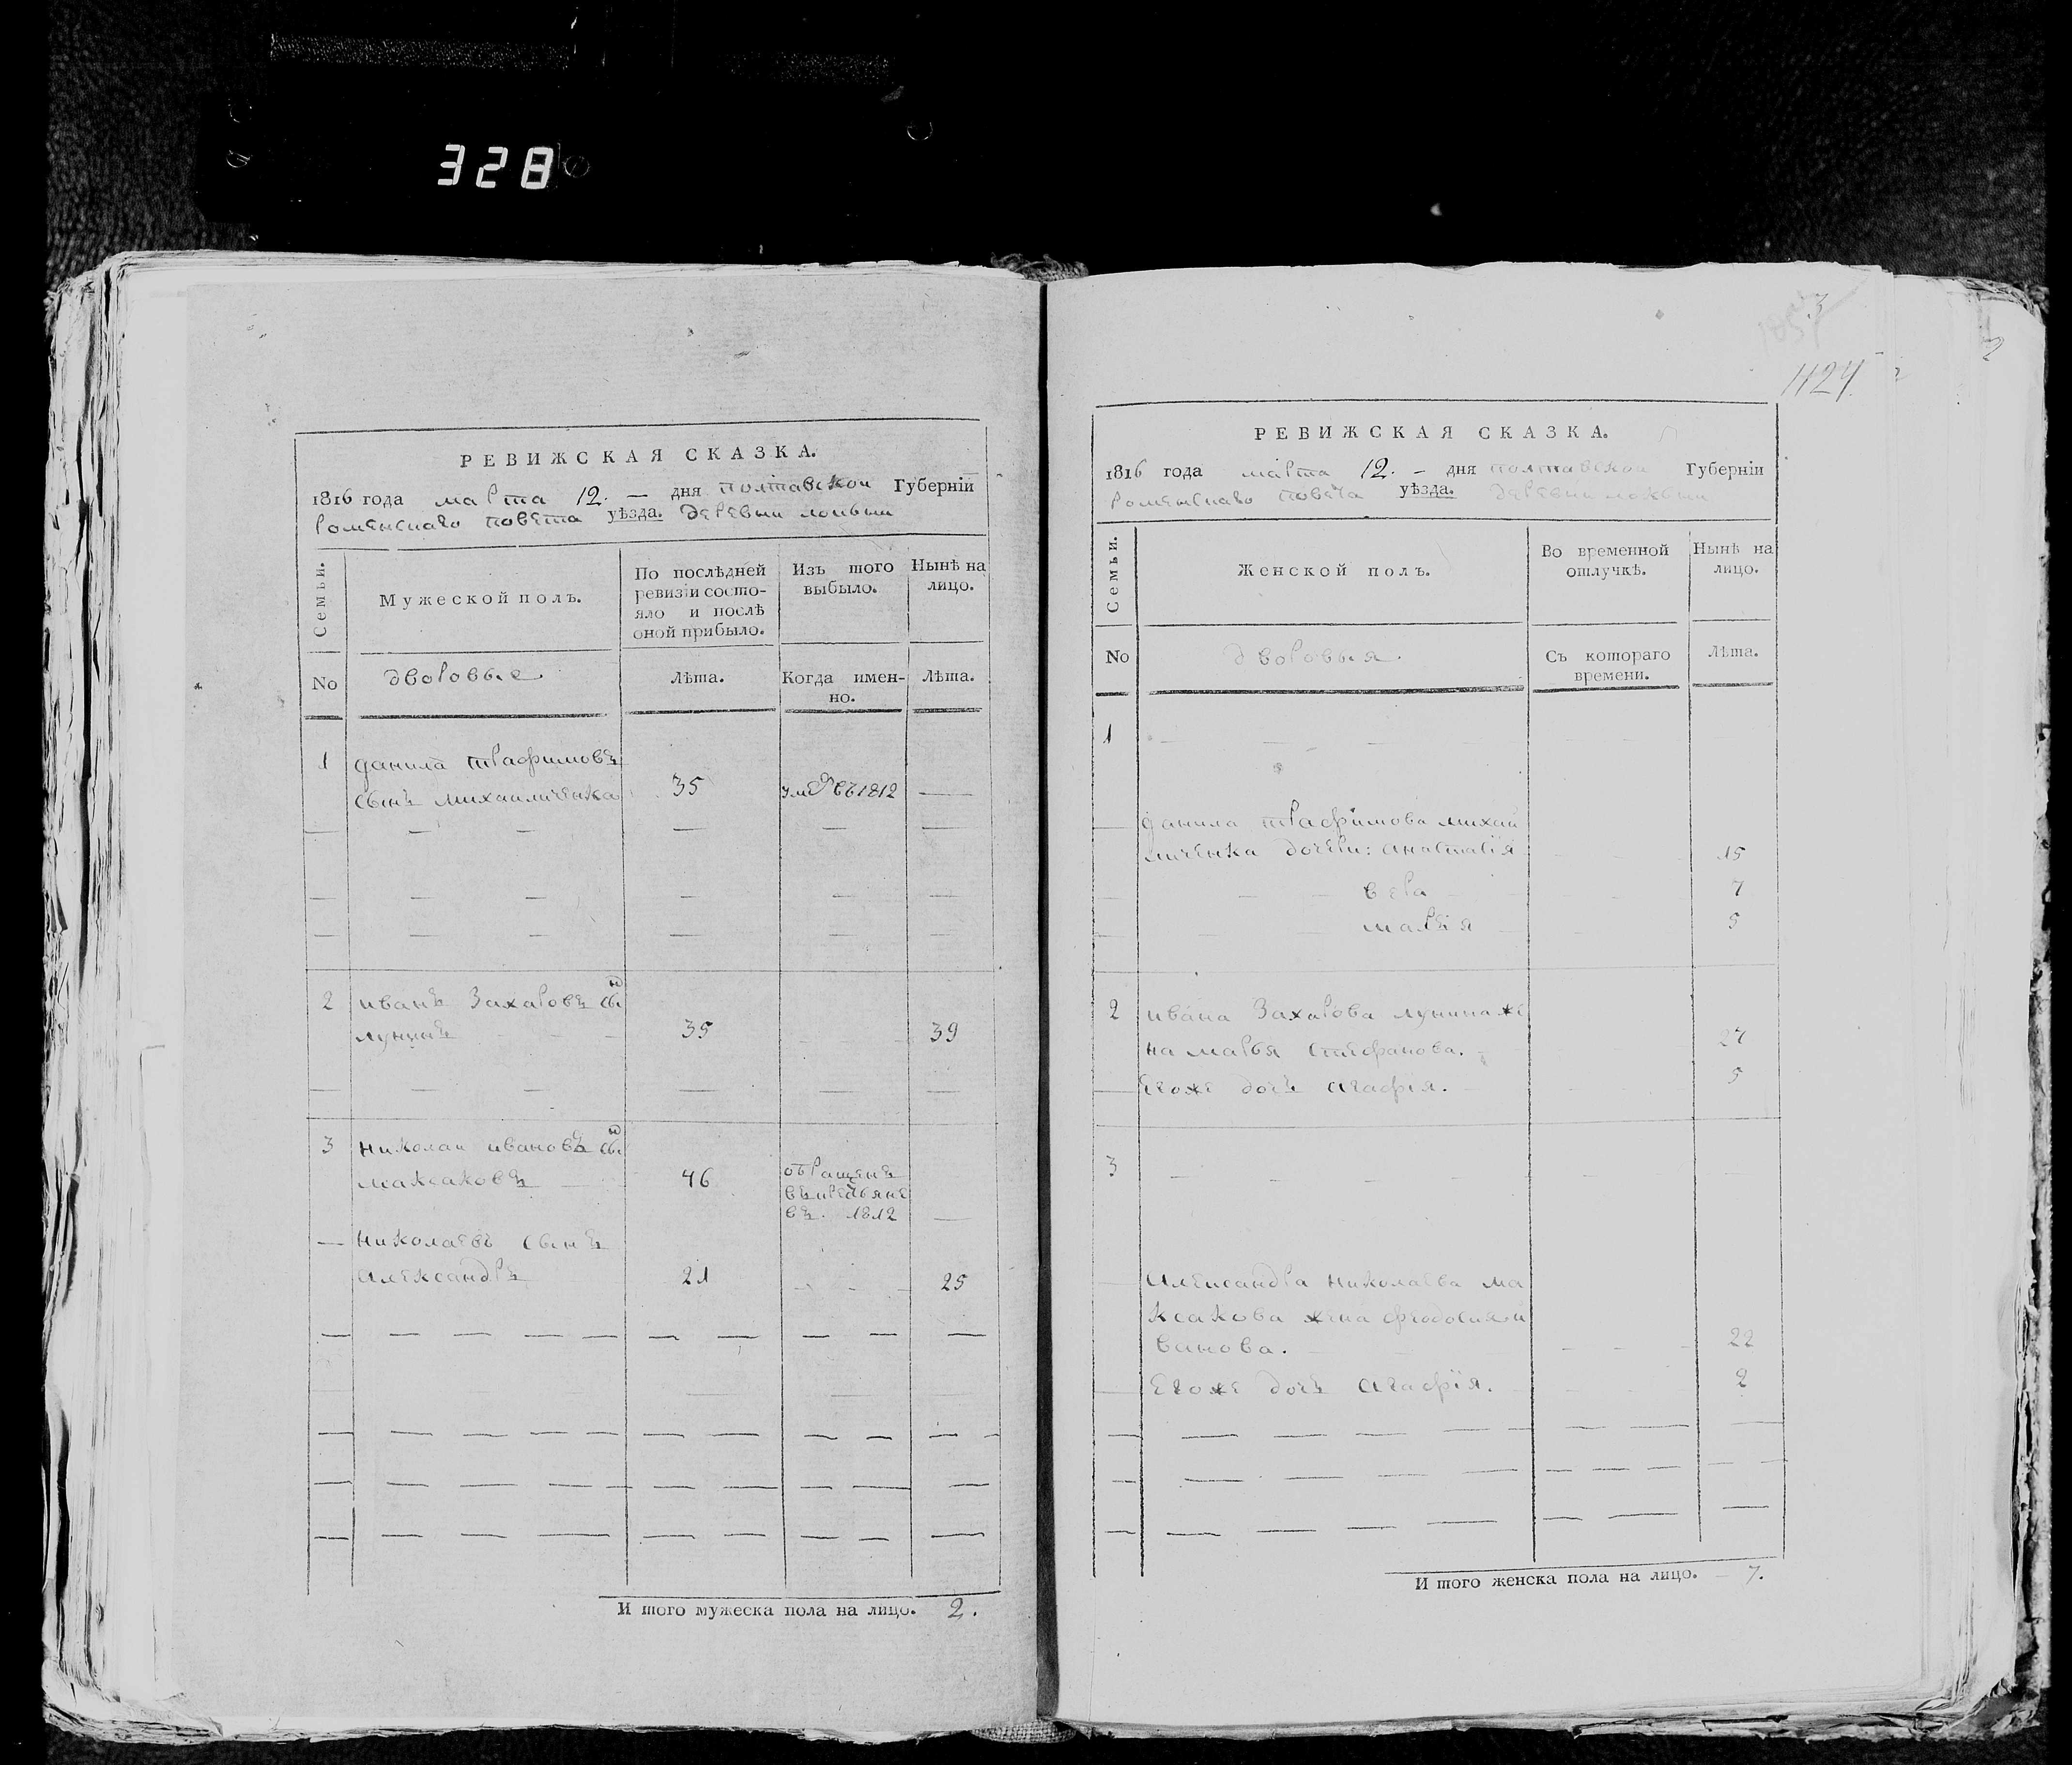 328
РЕВИЖСКАЯ СКАЗКА.
1816 года марта 12. — дня полтавской Губернїи
роменскаго повета уѣзда. деревни
Семьи.
Мужеской полъ.
По послѣдней ревизїи состо-
яло и послѣ
оной прибыло.
Изъ того
выбыло.
Нынѣ на
лицо.
No
дворовые
Лѣта.
Когда имен-
но.
Лѣта.
1 данила трафимовъ
сынъ михаиличенко 35 умре въ 1812 —
2 иванъ Захаровъ сын
лунинъ 35 39
3 николаи ивановъ сын
максаковъ 46 обращенъ
въ крестьяне
въ. 1812 —
— николаевъ сынъ
александръ 21 25
И того мужеска пола на лицо. 2.
3
1124
РЕВИЖСКАЯ СКАЗКА.
1816 года марта 12. — дня полтавской Губернїи
роменскаго повета уѣзда. деревни
Семьи.
Женской полъ.
Во временной
отлучкѣ.
Нынѣ на
лицо.
No
дворовыя.
Съ котораго
времени.
Лѣта.
1
данила трафимова михаи
личенка дочери: анастасїя 15
вера 7
марїя 5
2 ивана Захарова лунина же
на марья стефанова. 27
егоже дочь агафїя. 5
3
александра николаева ма
ксакова жена феодосия и
ванова. 22
егоже дочь агафїя. 2
И того женска пола на лицо. 7.